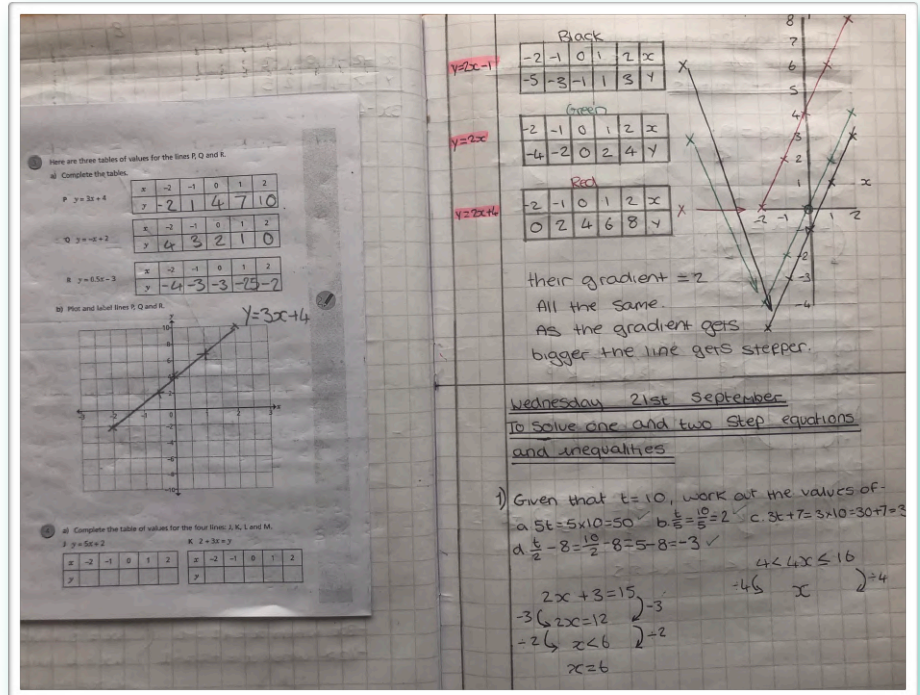 Here are three tables of values for the lines P, Q and R.
a) Complete the tables.
P y = 3x + 4
x -2 -1 0 1 2
y -2 1 4 7 10
Q y = -x + 2
x -2 -1 0 1 2
y 4 3 2 1 0
R y = 0.5x - 3
x -2 -1 0 1 2
y -4 -3 -3 -25 -2
b) Plot and label lines P, Q and R.
y=3x+4
a) Complete the table of values for the four lines J, K, L and M.
J y = 5x + 2
K 2 + 3x = y
x -2 -1 0 1 2
y
x -2 -1 0 1 2
y
Black
y=2x-1
-2 -1 0 1 2 x
-5 -3 -1 1 3 y
Green
y=2x
-2 -1 0 1 2 x
-4 -2 0 2 4 y
Red
y=2x+4
-2 -1 0 1 2 x
0 2 4 6 8 y
8
7
6
5
4
3
2
1
x
-2 -1 1 2
-2
-3
-4
their gradient = 2
All the same.
As the gradient gets
bigger the line gets stepper.
Wednesday 21st September
To solve one and two step equations
and inequalities
1) Given that t=10, work out the values of-
a. 5t=5x10=50 ✓ b. t/5=10/5=2 ✓ c. 3t+7=3x10=30+7=3
d. t/2-8=10/2-8=5-8=-3 ✓
2x+3=15
-3 2x=12 -3
-2 x<6 ÷2
x=6
4<4x≤16
-4 x ÷4